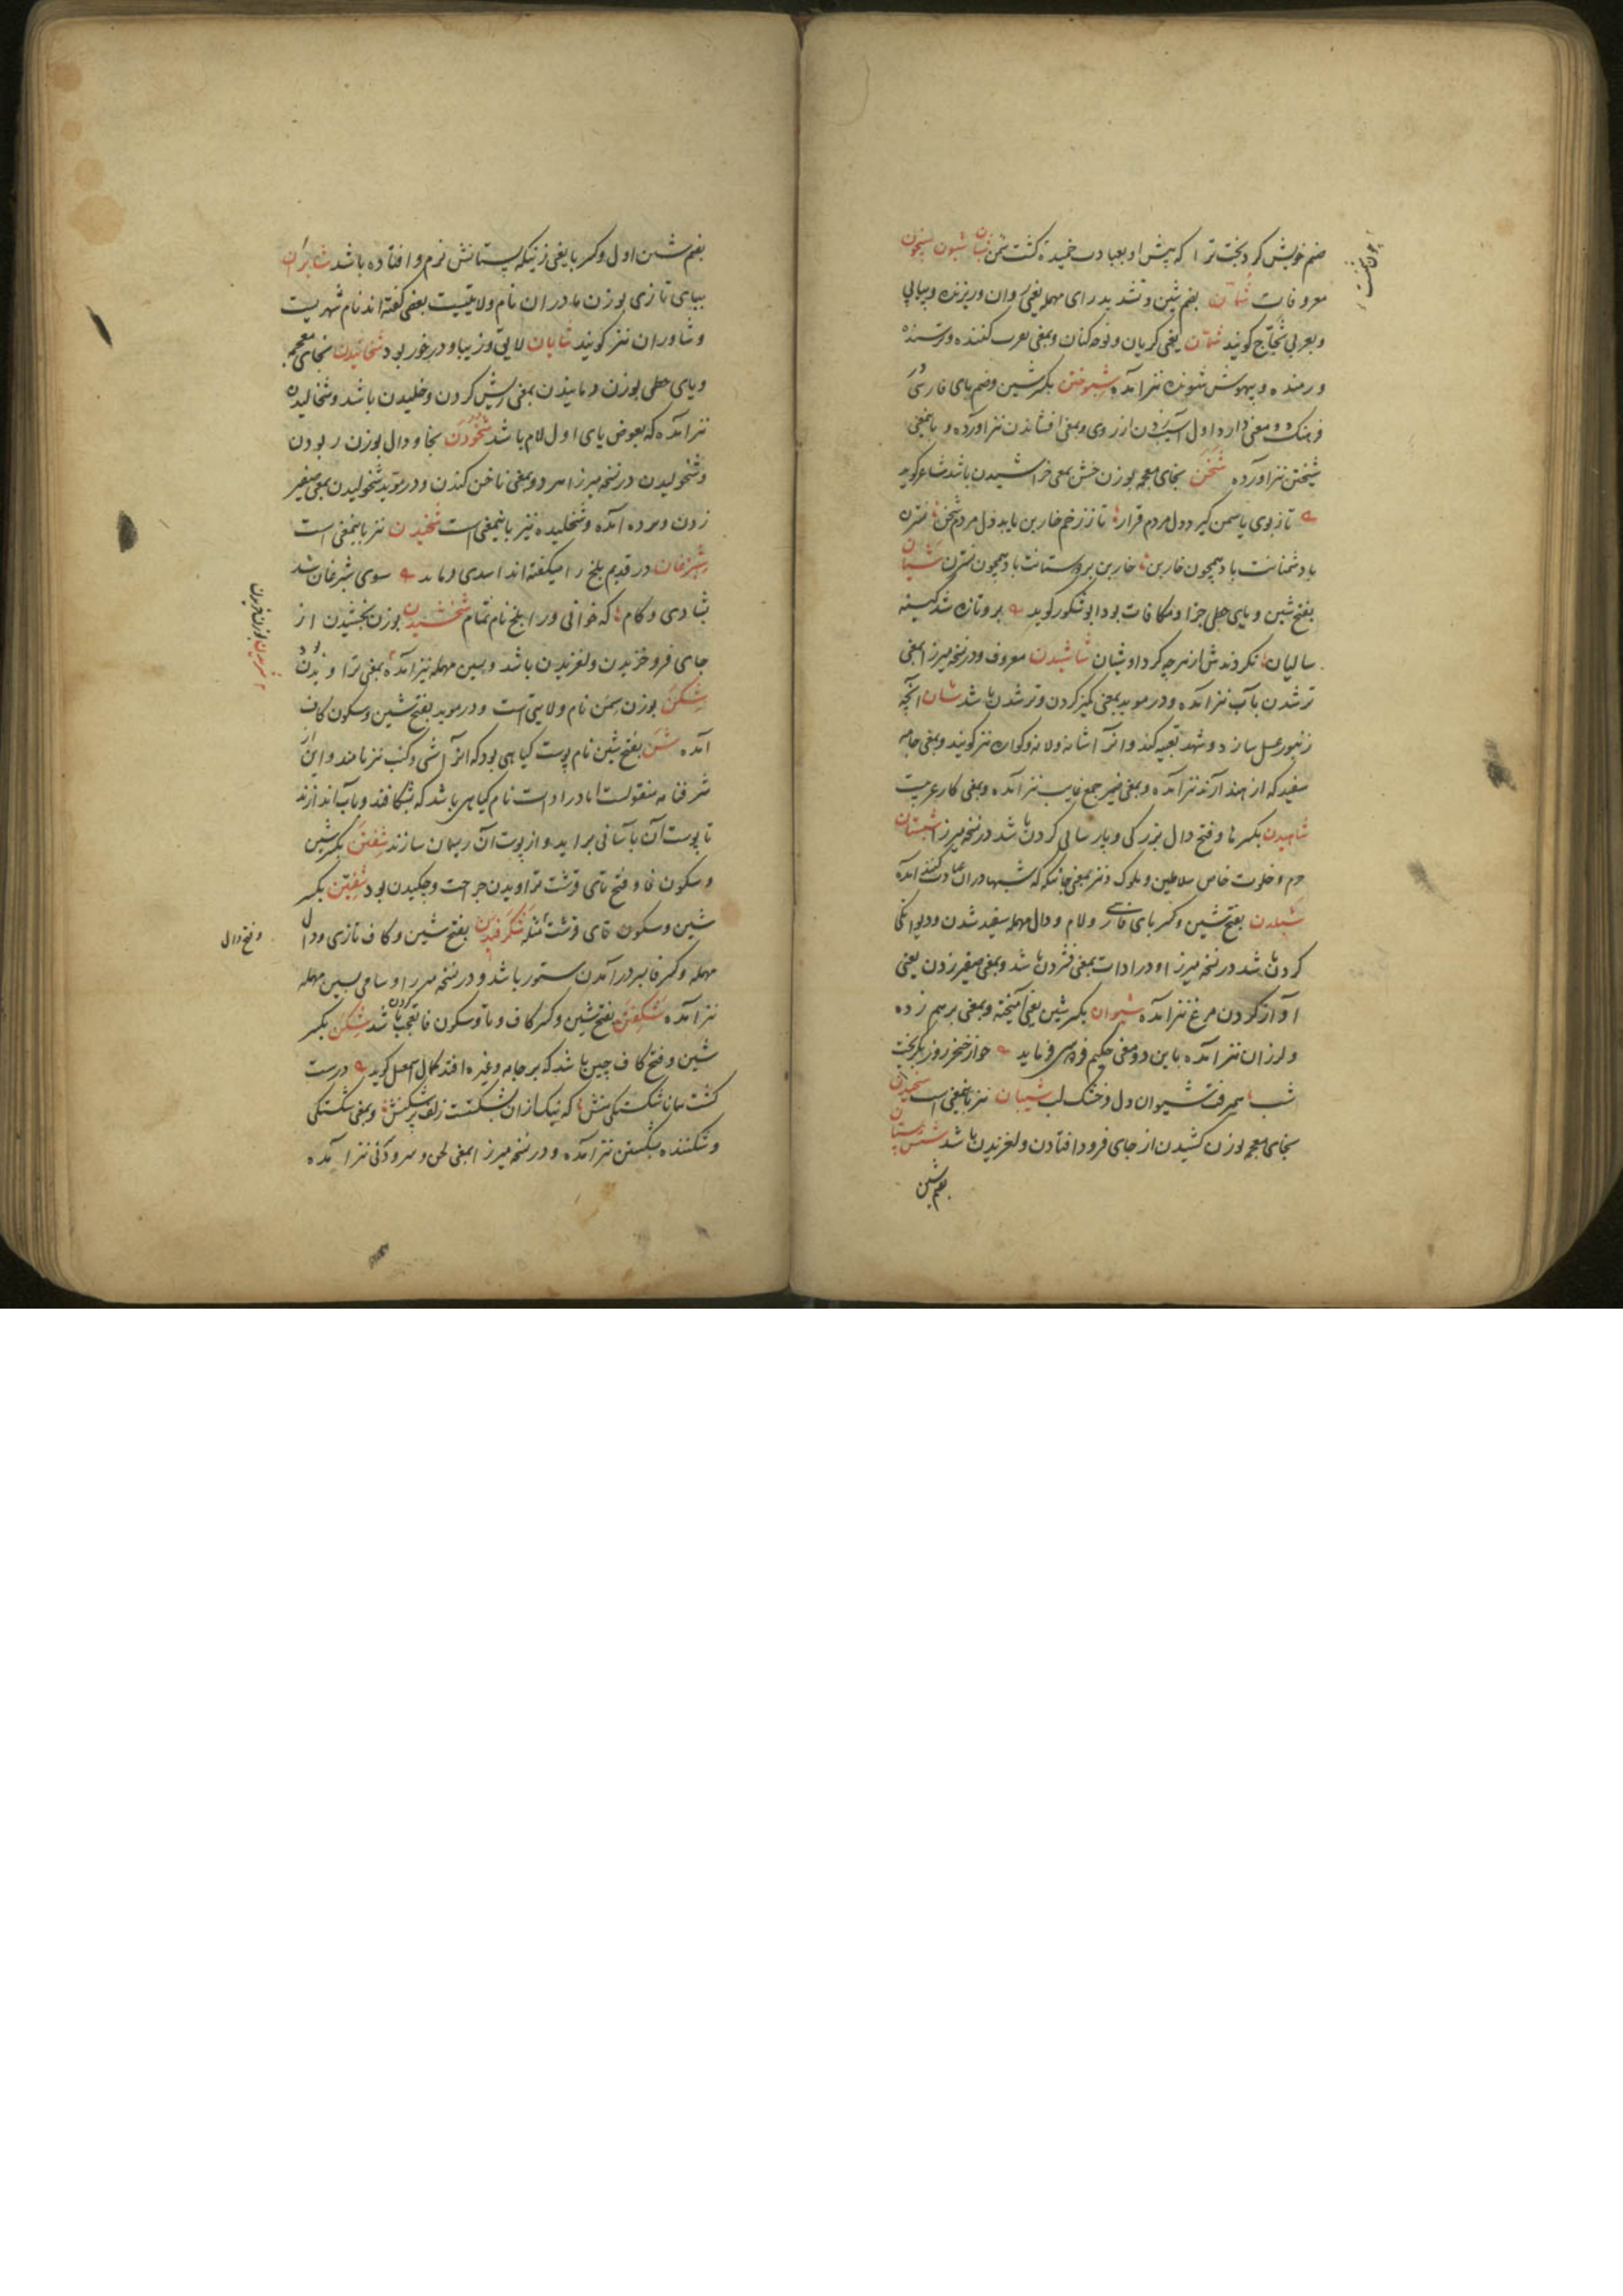 صنم خویش کرد بخت ترا که پیش او بعبادت خمیده گشت شمن شبان شیون
معروفات شاران بضم شین و تشدید رای مهمله یعنی روان و ریزنده و بیاپی
و بعربی ثجاج گویند یعنی گریان و نوحه کنان و بمعنی کننده و ترسنده
و رمنده و بیهوش شونده نیز آمده شپوختن بکسر شین و ضم بای فارسی در
فرهنگ دو معنی دارد اول آسیب زدن از روی و بمعنی افشاندن نیز آورده و باینمعنی
شیختن نیز آورده شخن بخای معجمه بوزن خشن بمعنی خراشیدن باشد شاعر گوید
تا ز بوی یاسمن گیرد دل مردم قرار تا ز زخم خار بن یابد دل مردم شخن
باد شمنانت باد همچون خار بن خار بن بر دوستانت باد همچون نسترن شیان
بفتح شین و یای حطی جزا و مکافات بود ابو شکور گوید بر و تازه شد کینه
سالیان نکردندش از هر چه کرد او شیان شاشیدن معروف و در نسخه میرزا بمعنی
تر شدن بآب نیز آمده و در موید بمعنی کمیز کردن و تر شدن باشد شان آنچه
زنبور عسل سازد و شهد تعبیه کند و آنرا آشانه و لانه و کواره نیز گویند و بمعنی جامه
سفید که از هند آرند نیز آمده و بمعنی ضمیر جمع غایب نیز آمده و بمعنی کار عربیت
شاهیدن بکسر ها و فتح دال بزرگی و پارسایی کردن باشد در نسخه میرزا شبستان
حرم و خلوت خاص سلاطین و ملوک و نیز بمعنی جائیکه که شبها در آن عبادت کنند آمده
شپلدن بفتح شین و کسر بای فارسی و لام و دال مهمله سفید شدن و دیوانگی
کردن باشد در نسخه میرزا و در ادات بمعنی فشردن باشد و بمعنی صفیر زدن یعنی
آواز کردن مرغ نیز آمده شیوان بکسر شین یعنی آمیخته و بمعنی برهم زده
و لرزان نیز آمده باین دو معنی حکیم فردوسی فرماید چو از خنجر روز بگریخت
شب همیرفت شیوان دل و خشک لب شیبان نیز باینمعنی است شخیدن
بخای معجمه بوزن کشیدن از جای فرود افتادن و لغزیدن باشد
بضم شین
بضم شین اول و کسر با یعنی زنیکه پستانش نرم و افتاده باشد شابران
ببای تازی بوزن مادران نام ولایتیست بعضی گفته اند نام شهریست
و شاوران نیز گویند شایان لایق و زیبا و درخور بود شخائیدن بخای معجمه
و یای حطی بوزن رمانیدن بمعنی ریش کردن و خلیدن باشد و شخالیدن
نیز آمده که بعوض یای اول لام باشد شخودن بخا و دال بوزن ربودن
و شخولیدن در نسخه میرزا هر دو بمعنی ناخن کندن و در موید شخولیدن بمعنی صفیر
زدن و آمده و شخلیده نیز باینمعنی است شخیدن نیز باینمعنی است
شبرغان در قدیم بلخ را میگفته اند اسدی فرماید سوی شبرغان شد
بشادی و کام که خوانی ورا بلخ نام تمام شخشیدن بوزن بخشیدن از
جای فرو خزیدن و لغزیدن باشد و بسین مهمله نیز آمده بمعنی تراویدن
شکن بوزن سمن نام ولایتی است و در موید بفتح شین و سکون کاف
آمده شن بفتح شین نام پوست گیاهی بود که آنرا آشی و کنب نیز نامند و این از
شرفنامه منقولست اما در ادات نام گیاهی باشد که بشکافند و بآب اندازند
تا پوست آن بآسانی براید و از پوست آن ریسمان سازند شفتن بکسر شین
و سکون فا و فتح تای قرشت تراویدن جراحت و چکیدن بود شفتن بکسر
شین و سکون تای قرشت مثله شکرفیدن بفتح شین و کاف تازی و دال
و فتح دال
مهمله و کسر فا بسر درآمدن ستور باشد و در نسخه میرزا و سامی بسین مهمله
نیز آمده شکفتن بفتح شین و کسر کاف و تا و سکون فا تعجب کردن باشد شکن بکسر
شین و فتح کاف چین باشد که بر جامه و غیره افتد کمال اسمعیل گوید درست
گشت همانا شکستگی منش که نیک از آن بشکست زلف پر شکنش و بمعنی شکستگی
و شکننده و شکستن نیز آمده و در نسخه میرزا بمعنی لحن و سرودگی نیز آمده